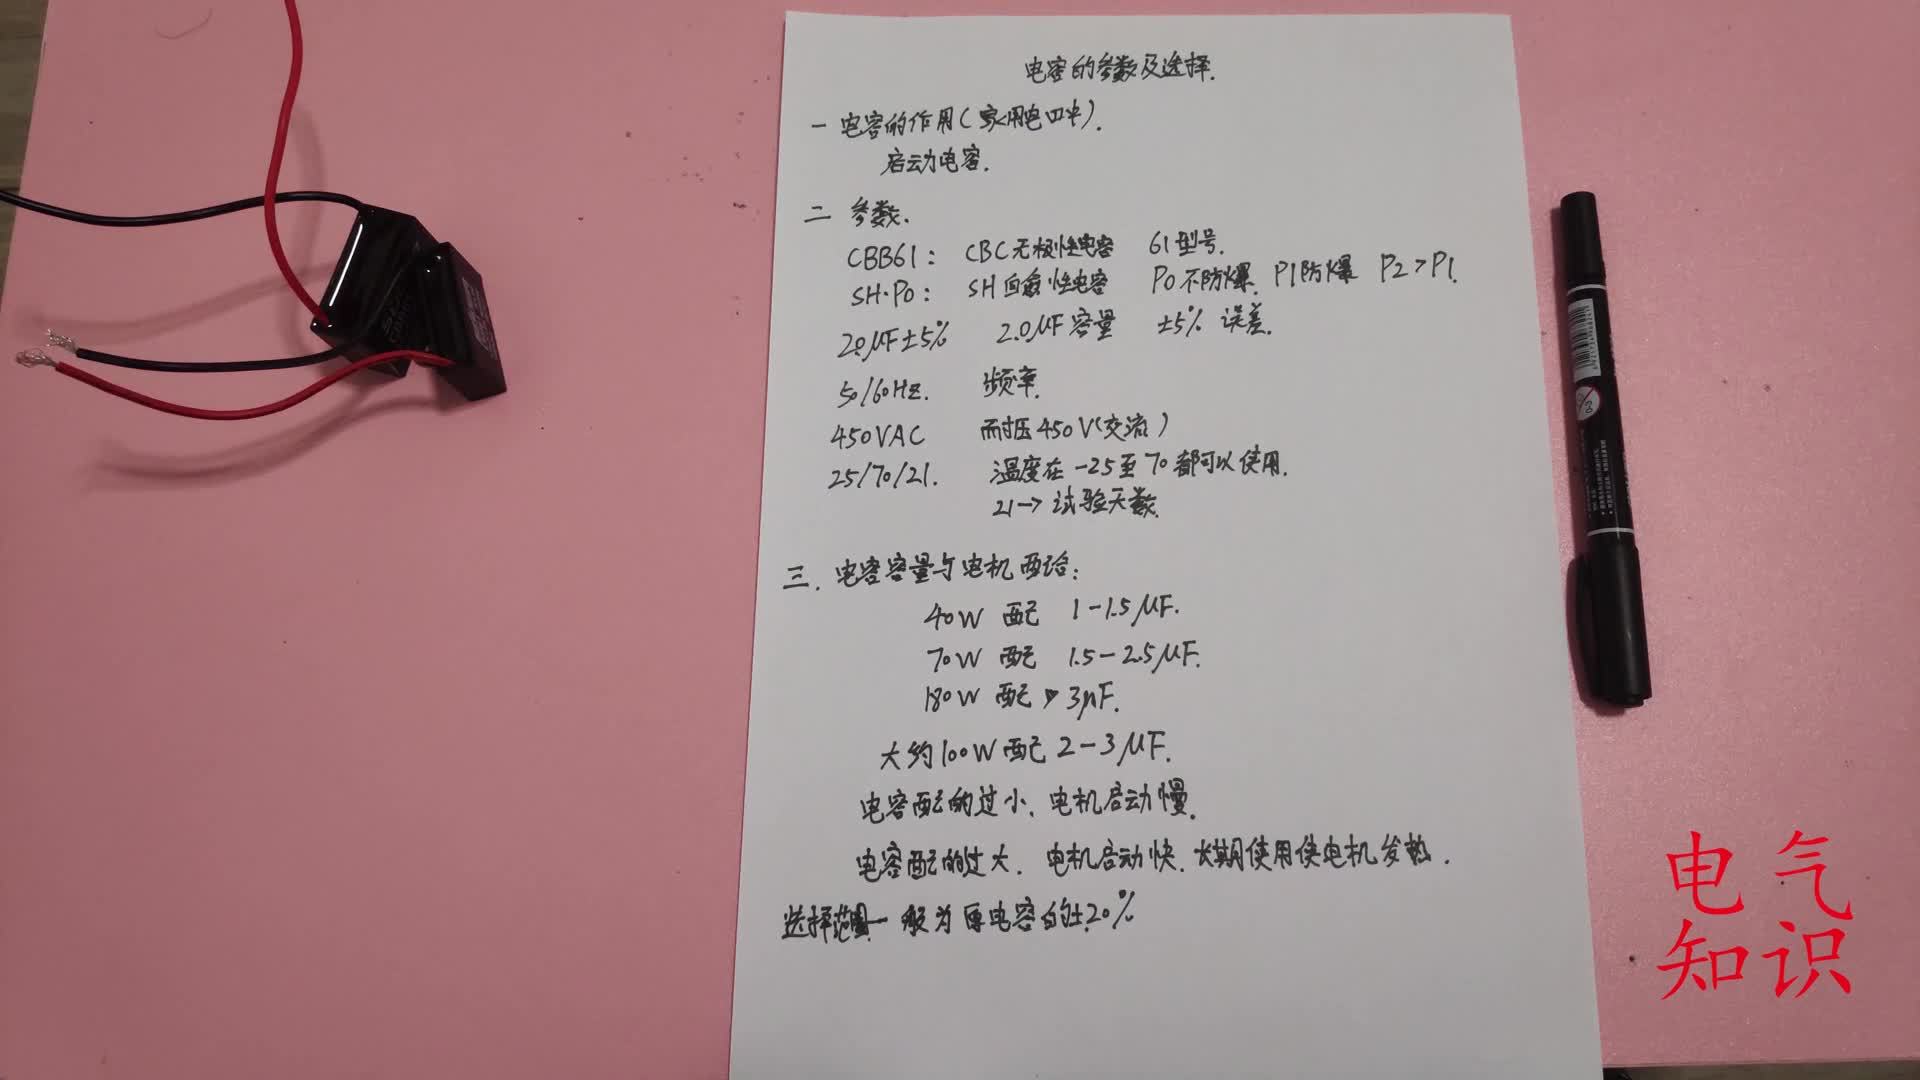 电容的参数及选择.
一 电容的作用(家用电四中).
启动电容.
二 参数.
CBB61: CBC无极性电容 61型号.
SH·P0: SH自愈性电容 P0不防爆. P1防爆 P2>P1.
2.0μF±5% 2.0μF容量 ±5% 误差.
50/60Hz. 频率.
450VAC 耐压450V(交流)
25/70/21. 温度在-25至70都可以使用.
21→试验天数.
三. 电容容量与电机配合:
40W 配 1-1.5μF.
70W 配 1.5-2.5μF.
180W 配 3μF.
大约100W配2-3μF.
电容配的过小、电机启动慢.
电容配的过大. 电机启动快. 长期使用使电机发热.
选择范围一般为原电容的±20%
电气
知识